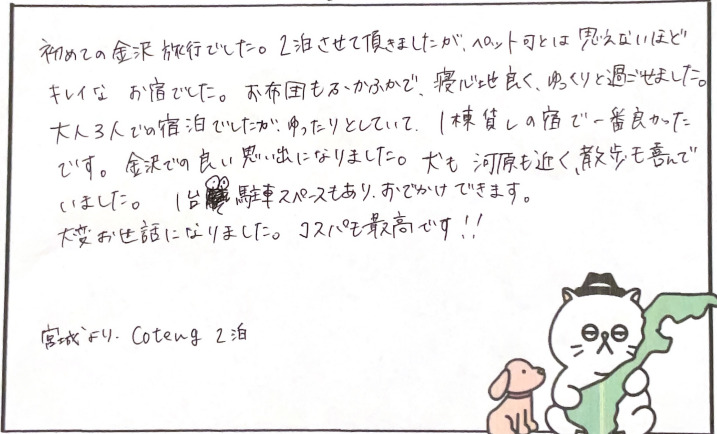 初めての金沢旅行でした。2泊させて頂きましたが、ペット可とは思えないほど
キレイな お宿でした。お布団もふかふかで、寝心地良く、ゆっくりと過ごせました。
大人3人での宿泊でしたが、ゆったりとしていて、1棟貸しの宿で一番良かった
です。金沢での良い思い出になりました。犬も 河原も近く、散歩も喜んで
いました。 1台 駐車スペースもあり、おでかけできます。
大変お世話になりました。コスパも最高です!!
宮城より. Coteng 2泊